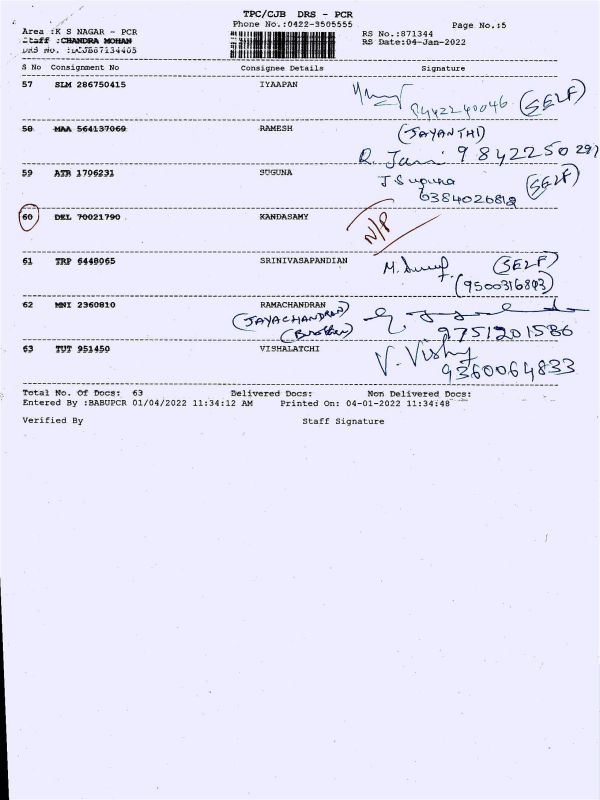 TPC/CJB DRS - PCR
Phone No.:0422-3505555
Page No.:5
Area :K S NAGAR - PCR
RS No.:871344
Staff :CHANDRA MOHAN
RS Date:04-Jan-2022
DRS No. :DCJB67134405
S No Consignment No Consignee Details Signature
57 SLM 286750415 IYAAPAN
9442240046 (SELF)
58 MAA 564137069 RAMESH (JAYANTHI)
R. Jani 9842250297
59 ATR 1706231 SUGUNA J Suguna (SELF)
6384026818
60 DEL 70021790 KANDASAMY N/P
61 TRP 6448065 SRINIVASAPANDIAN (SELF)
(9500316843)
62 MNI 2360810 RAMACHANDRAN
(JAYACHANDRAN)
(Brother) 9751201586
63 TUT 951450 VISHALATCHI V. Vishy
9360064833
Total No. Of Docs: 63 Delivered Docs: Non Delivered Docs:
Entered By :BABUPCR 01/04/2022 11:34:12 AM Printed On: 04-01-2022 11:34:48
Verified By Staff Signature